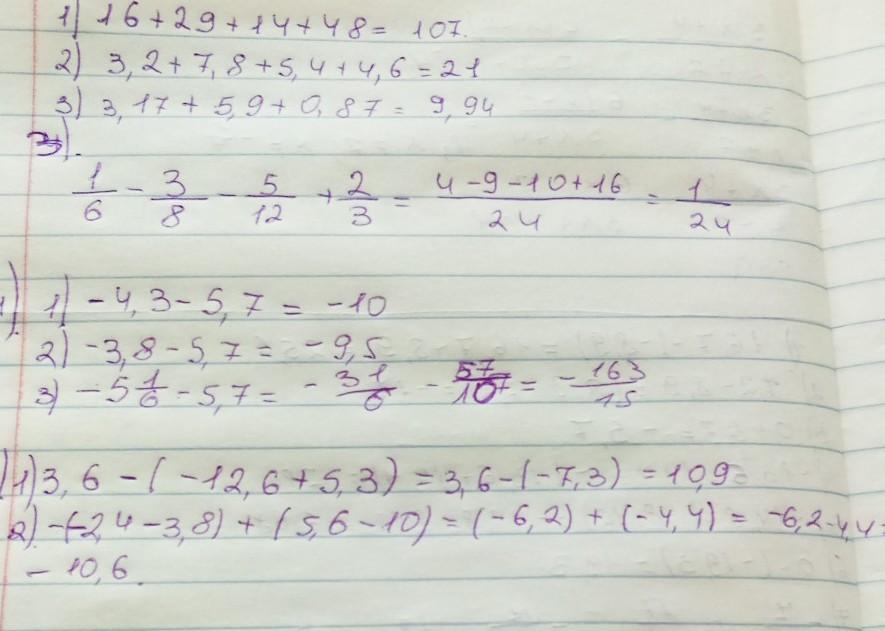 1) 16+29+14+48= 107.
2) 3,2+7,8+5,4+4,6=21
3) 3,17+5,9+0,87= 9,94
3).
1/6 - 3/8 - 5/12 + 2/3 = (4-9-10+16)/24 = 1/24
1) -4,3-5,7 = -10
2) -3,8-5,7= -9,5
3) -5 1/6 -5,7= -31/6 - 57/10 = -163/15
1) 3,6-(-12,6+5,3)=3,6-(-7,3)=10,9
2) -(-2,4-3,8)+(5,6-10)=(-6,2)+(-4,4)= -6,2-4,4=
-10,6.